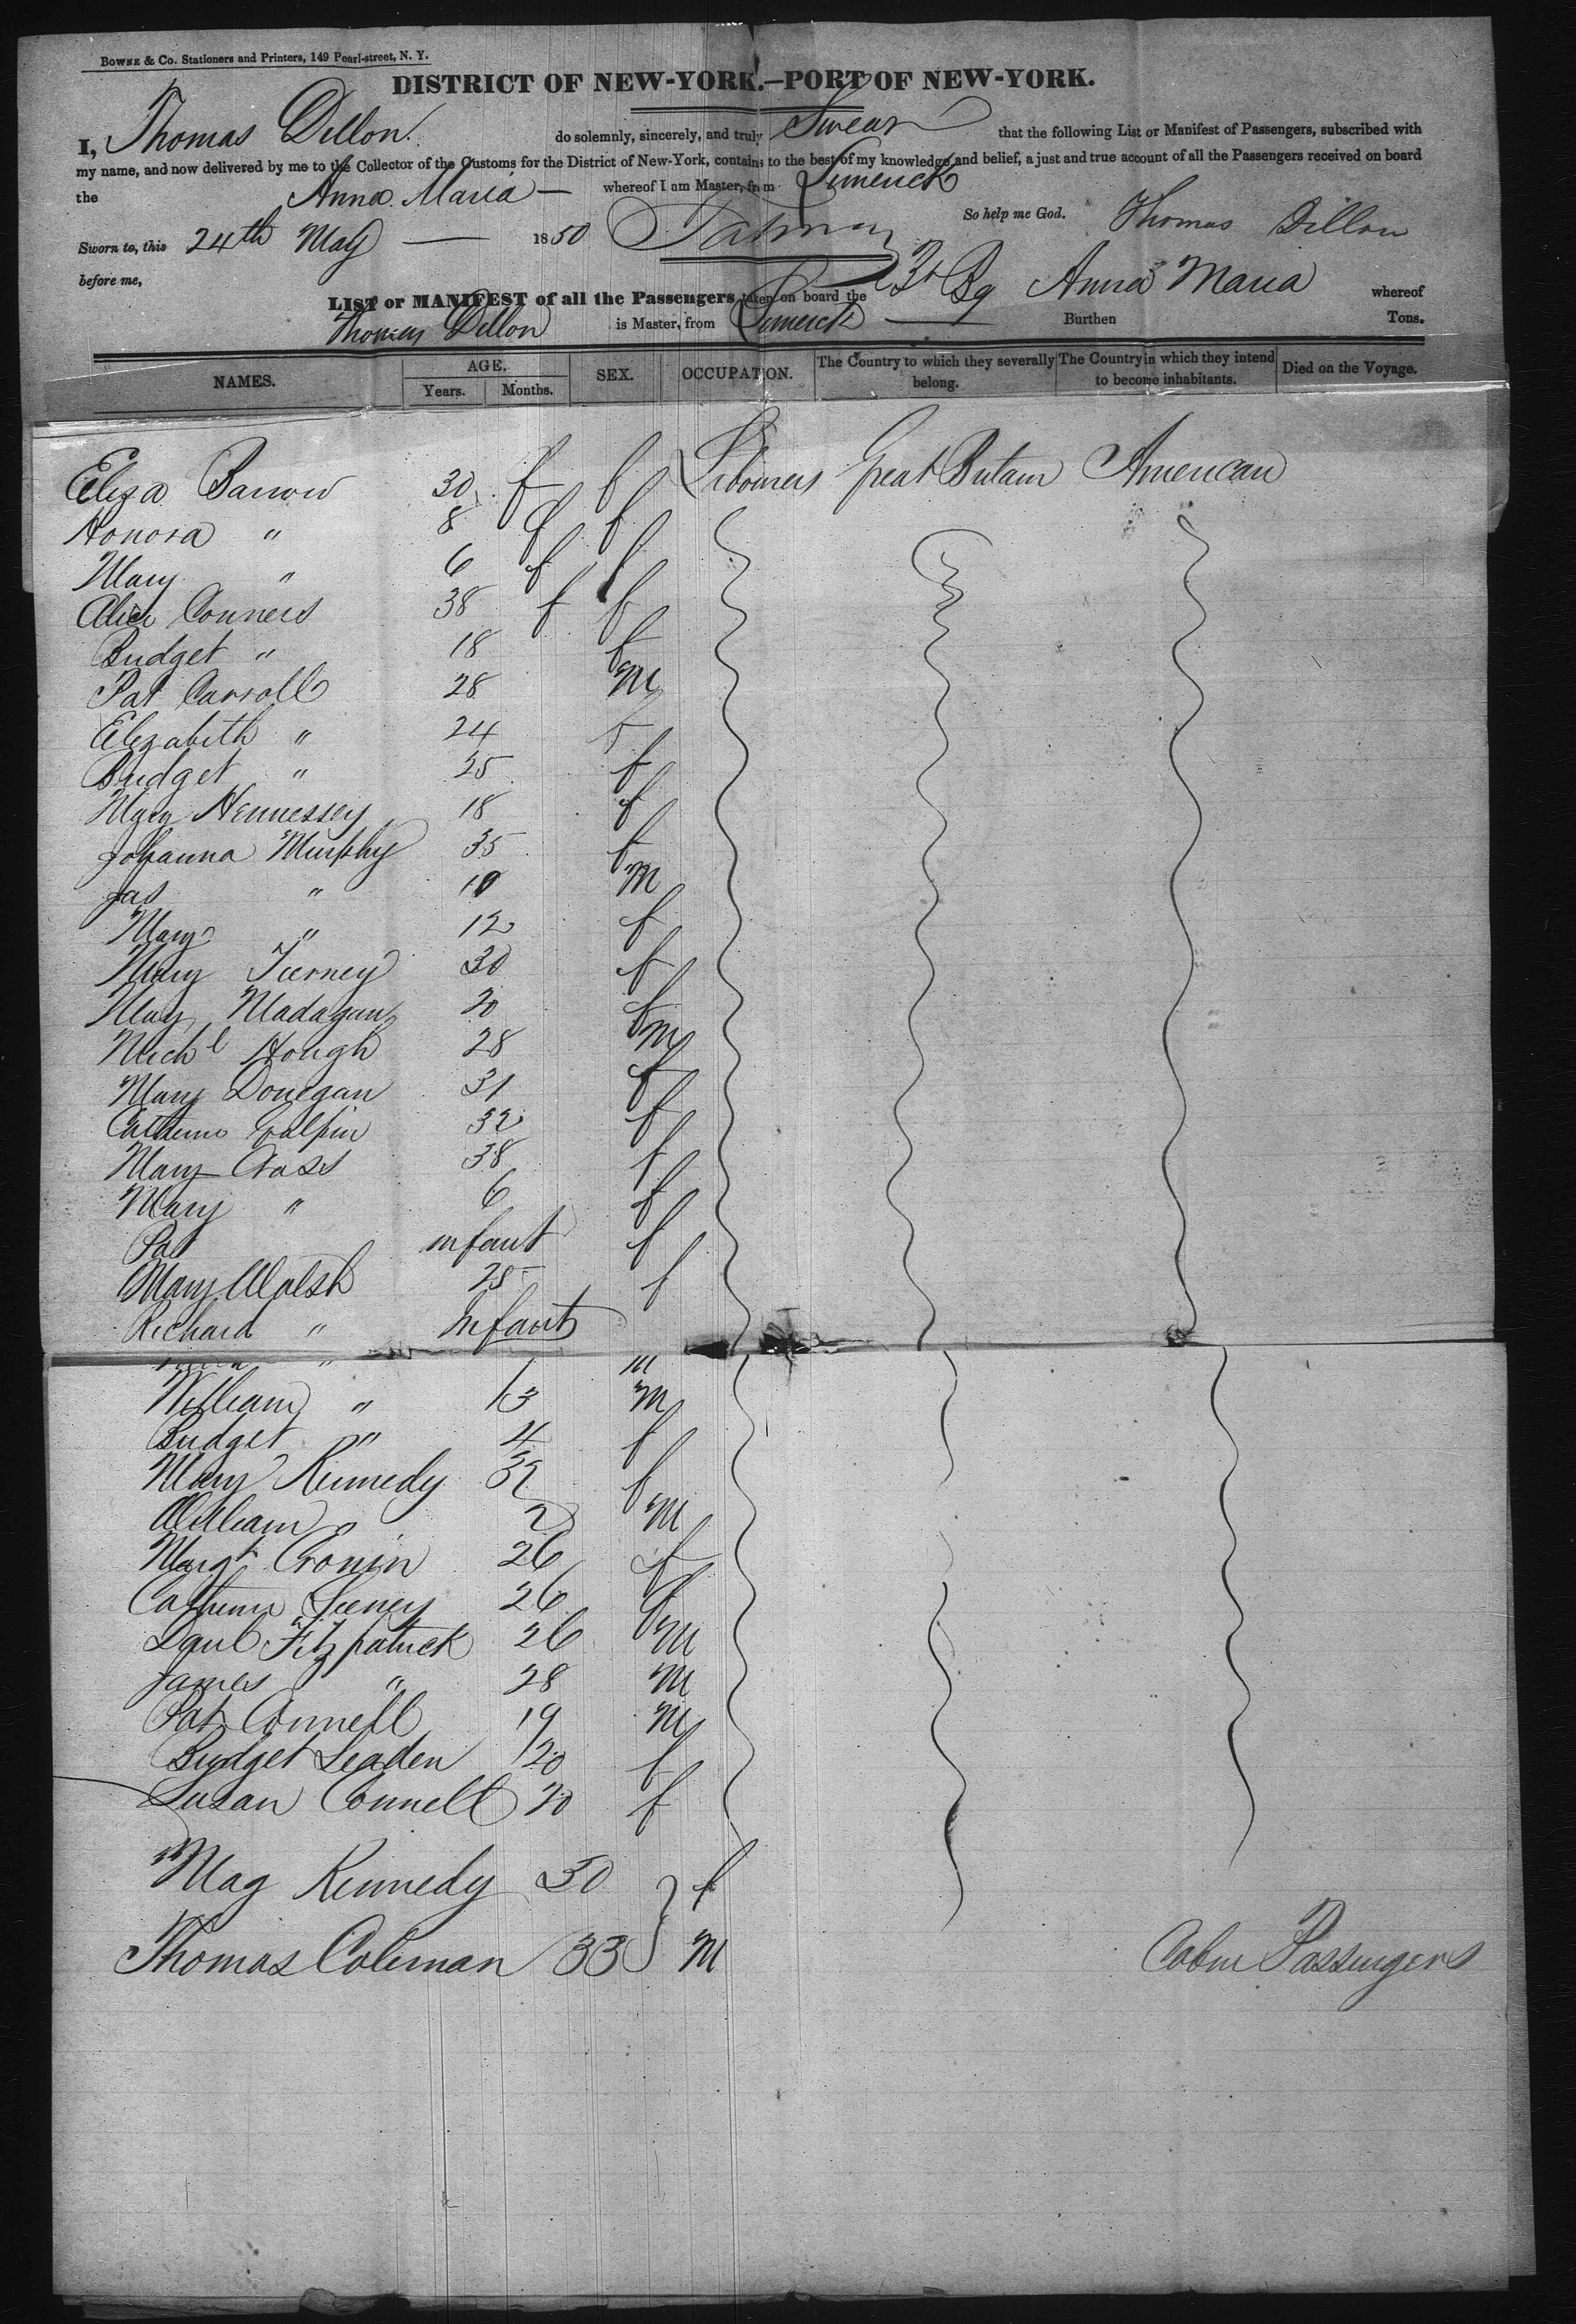 BOWNE & Co. Stationers and Printers, 149 Pearl-street, N. Y.
DISTRICT OF NEW-YORK.—PORT OF NEW-YORK.
I, Thomas Dillon do solemnly, sincerely, and truly Swear that the following List or Manifest of Passengers, subscribed with
my name, and now delivered by me to the Collector of the Customs for the District of New-York, contains to the best of my knowledge and belief, a just and true account of all the Passengers received on board
the Anna Maria — whereof I am Master, from Limerick
Sworn to, this 24th May — 1850 So help me God. Thomas Dillon
before me,
LIST or MANIFEST of all the Passengers taken on board the Bg Anna Maria whereof
Thomas Dillon is Master, from Limerick — Burthen Tons.
NAMES. AGE. SEX. OCCUPATION. The Country to which they severally belong. The Country in which they intend to become inhabitants. Died on the Voyage.
Years. Months.
Eliza Barrow 30 f f Labourers Great Britain American
Honora " 8 f f
Mary " 6 f f
Alice Conners 38 f f
Bridget " 18 f
Pat Carroll 28 M
Elizabeth " 24 f
Bridget " 25 f
Mary Hennessey 18 f
Johanna Murphy 35 f
Jas " 10 M
Mary " 12 f
Mary Tierney 30 f
Mary Madagan 20 f
Michl Hough 28 M
Mary Donegan 31 f
Catherine Galpin 32 f
Mary Cross 38 f
Mary " 6 f
Pat infant f
Mary Walsh 25 f
Richard " Infant
" m
William " 13 M
Bridget " 4 f
Mary Kennedy 32 f
William " 2 M
Margt Cronin 26 f
Catherine 26 f
Danl Fitzpatrick 26 M
James " 28 M
Pat Connell 19 M
Bridget Leaden 20 f
Susan Connell 20 f
Mag Kennedy 30 } f
Thomas Coleman 33 } M Cabin Passengers